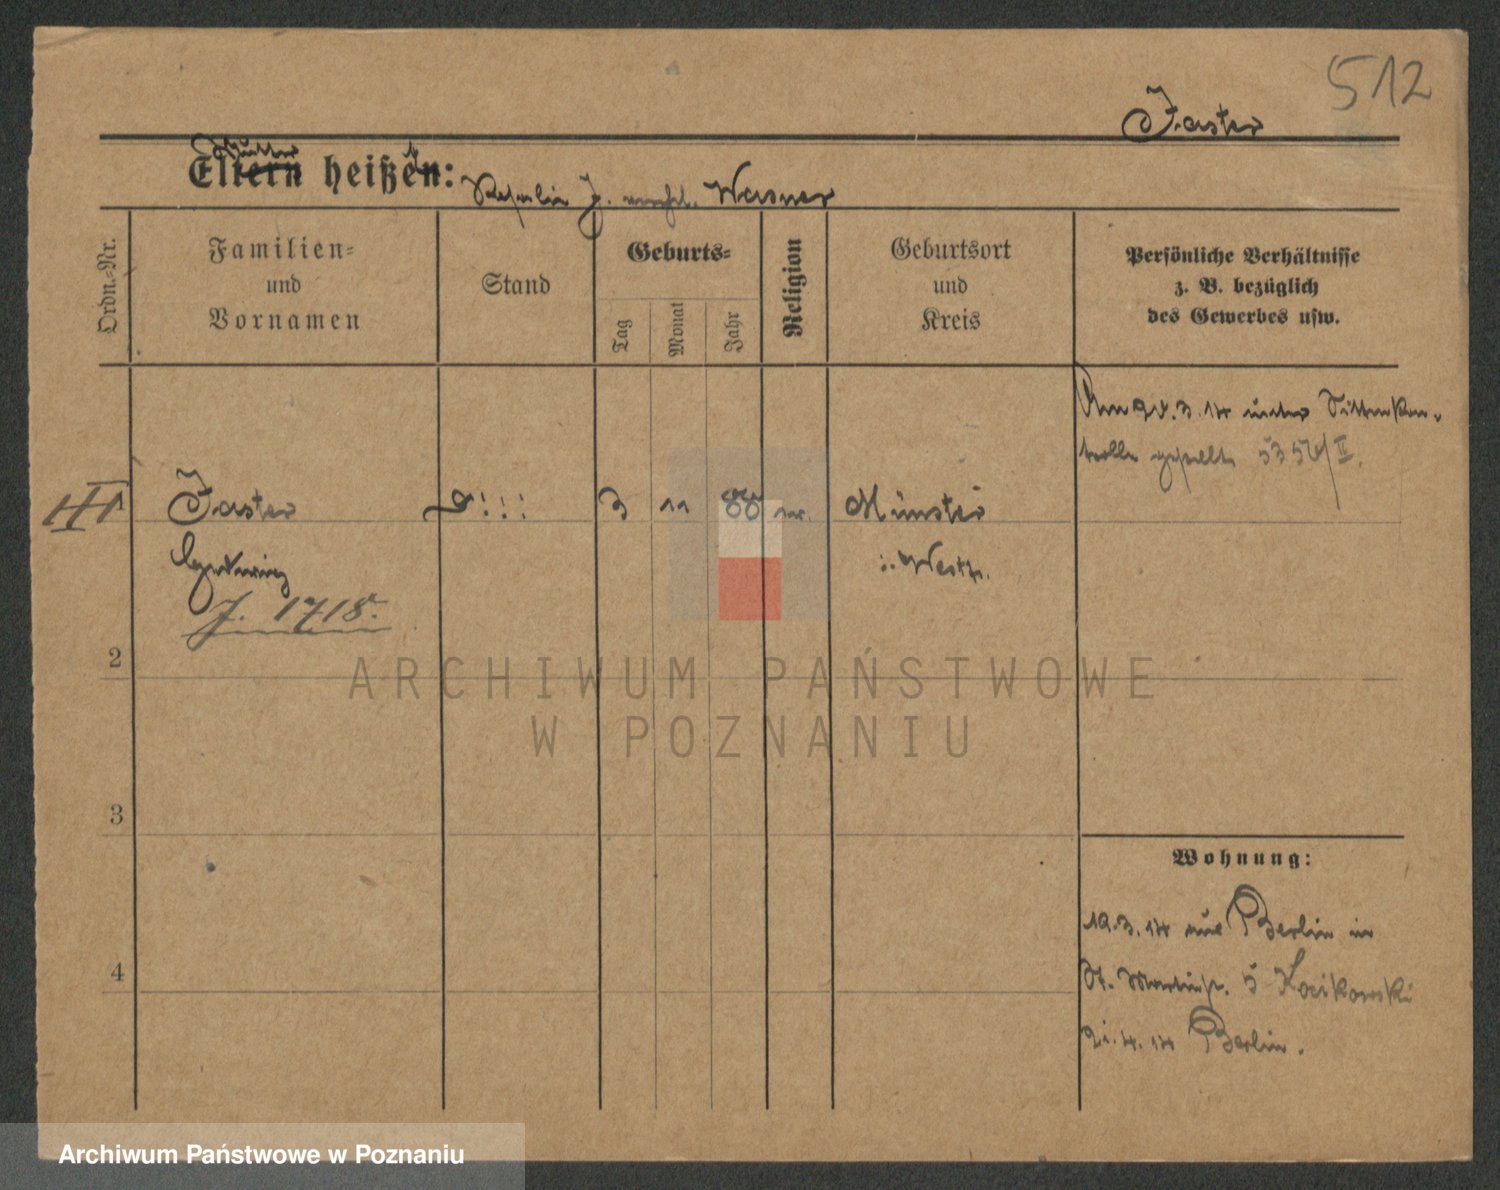 512
Jaster
Mutter
Eltern heißen:
J. Wasner
Ordn.-Nr.
Familien-
und
Vornamen
Stand
Geburts-
Tag
Monat
Jahr
Religion
Geburtsort
und
Kreis
Persönliche Verhältnisse
z. B. bezüglich
des Gewerbes usw.
Am 20.3.14 unter Sittenkon-
trolle gestellt 5350/II.
Jaster
3 11 88
Münster
i. Westf.
Hedwig
J. 1718.
2
3
4
Wohnung:
19.3.14 aus Berlin in
St. Martinstr. 5 Kocikowski
21.4.14 Berlin.
ARCHIWUM PAŃSTWOWE
W POZNANIU
Archiwum Państwowe w Poznaniu